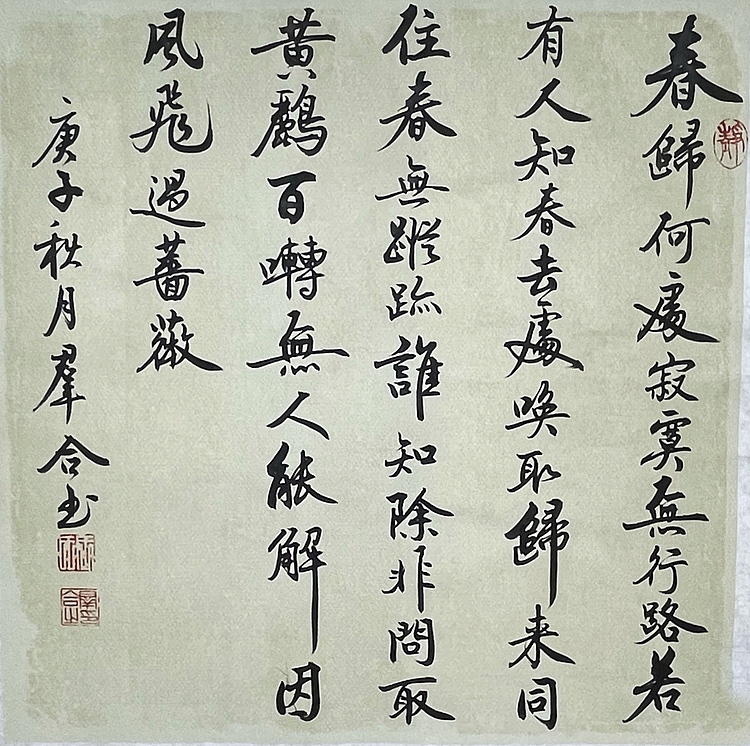 春歸何處寂寞無行路若
有人知春去處喚取歸来同
住春無蹤跡誰知除非問取
黄鸝百囀無人能解因
風飛過薔薇
庚子秋月羣合书